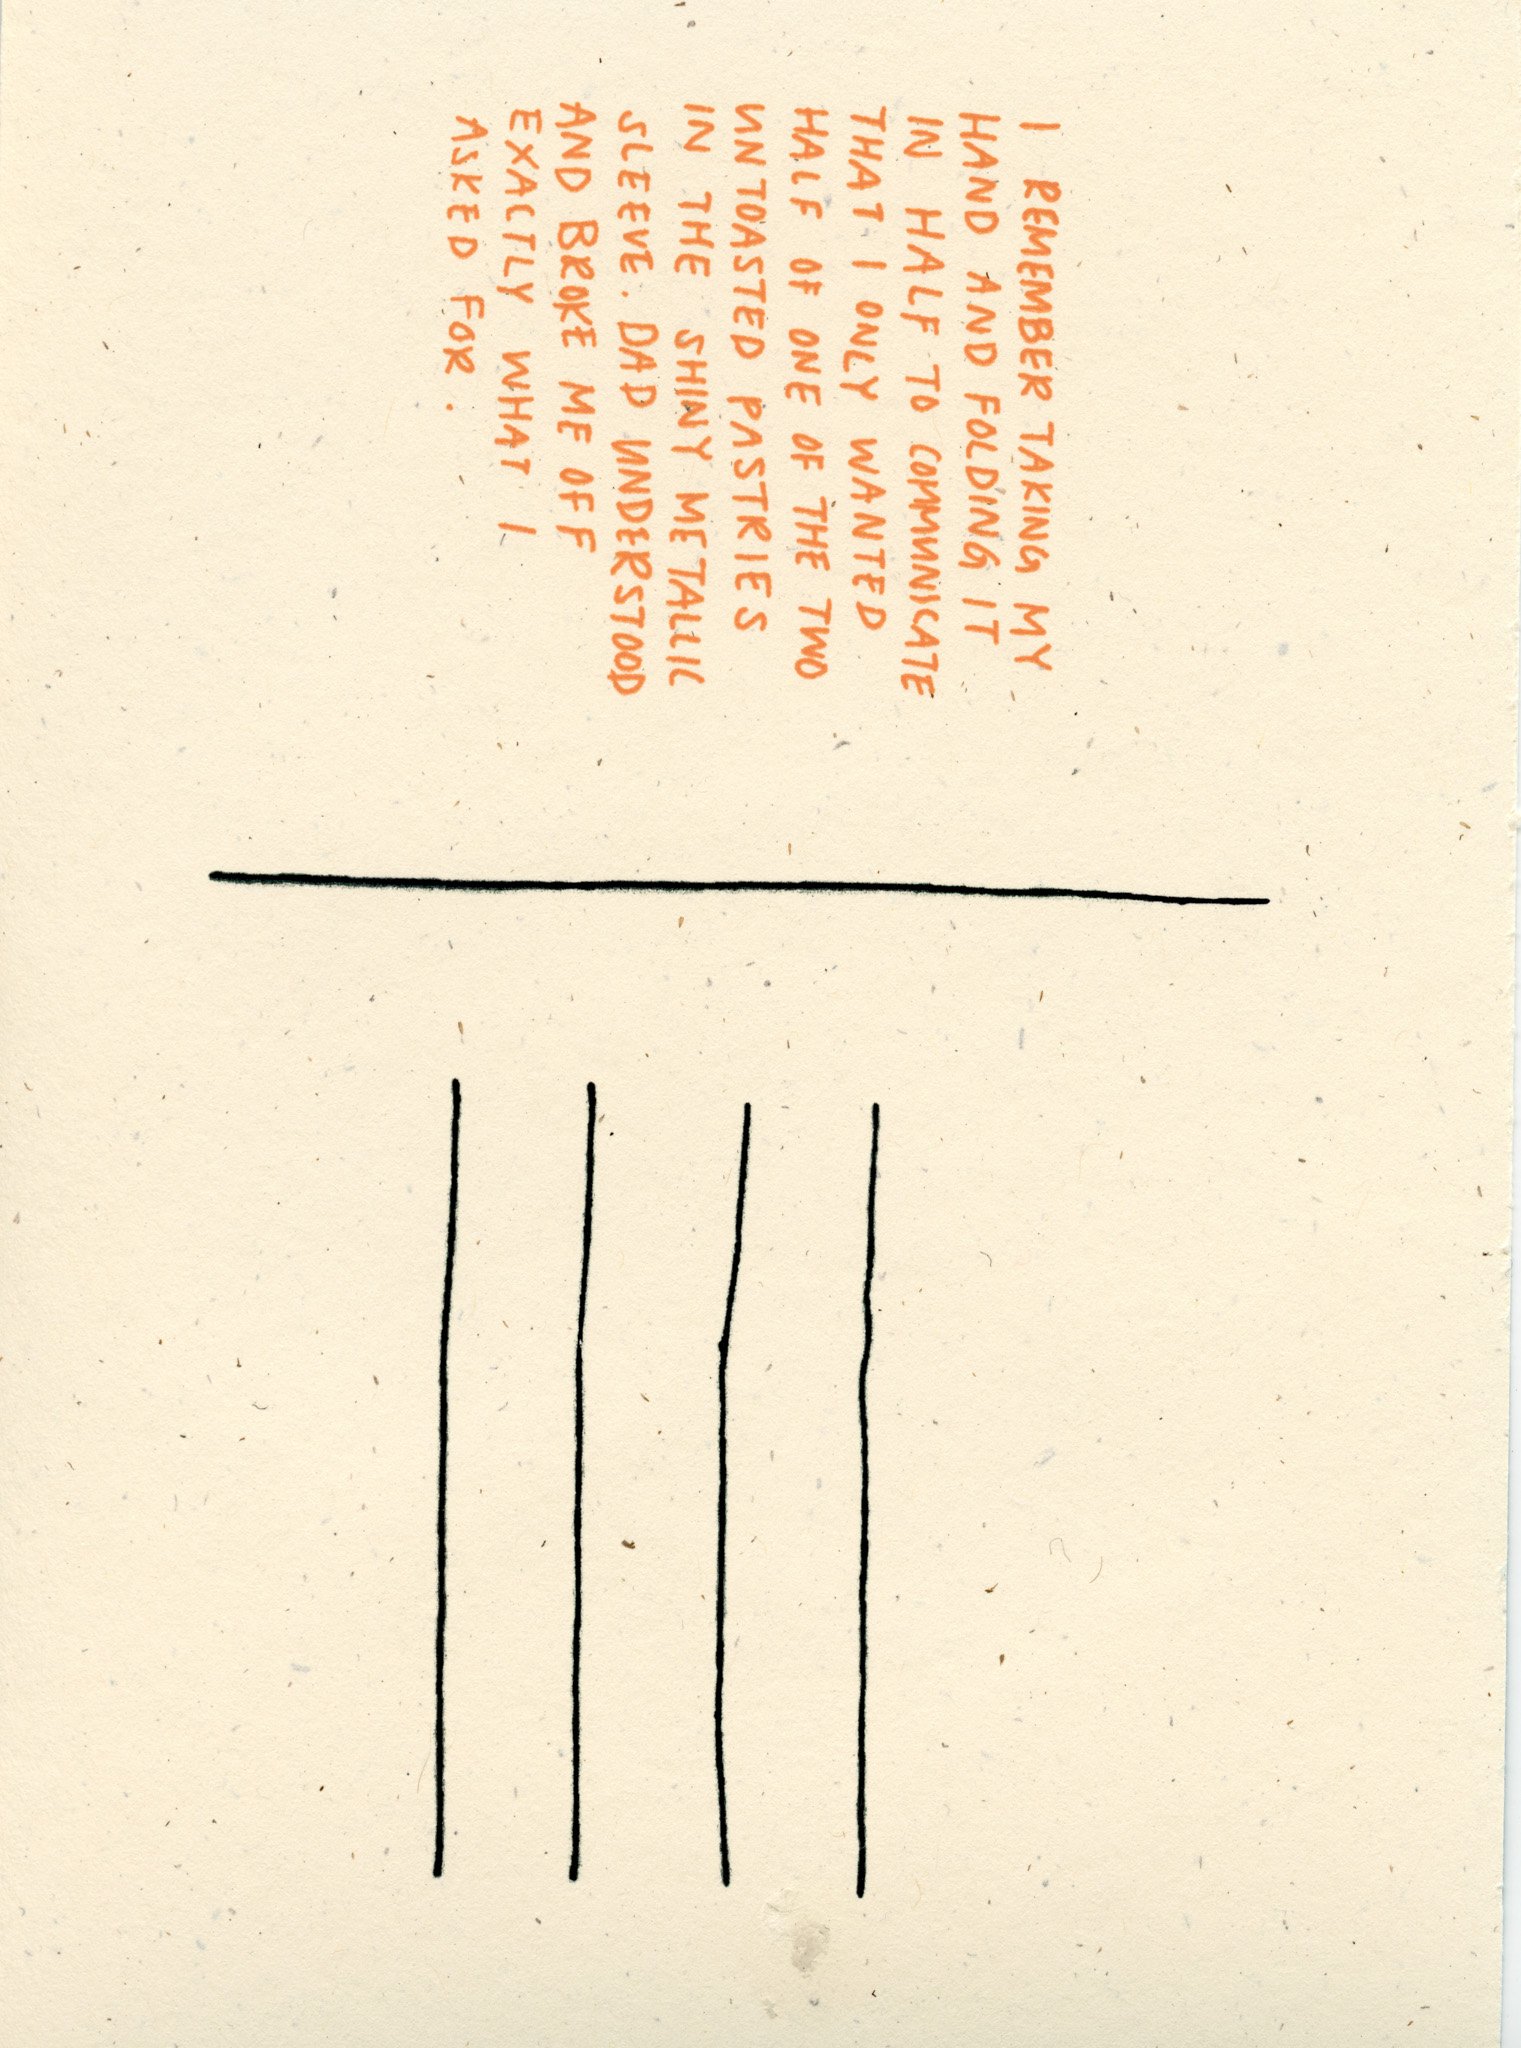 I REMEMBER TAKING MY
HAND AND FOLDING IT
IN HALF TO COMMUNICATE
THAT I ONLY WANTED
HALF OF ONE OF THE TWO
UNTOASTED PASTRIES
IN THE SHINY METALLIC
SLEEVE. DAD UNDERSTOOD
AND BROKE ME OFF
EXACTLY WHAT I
ASKED FOR.